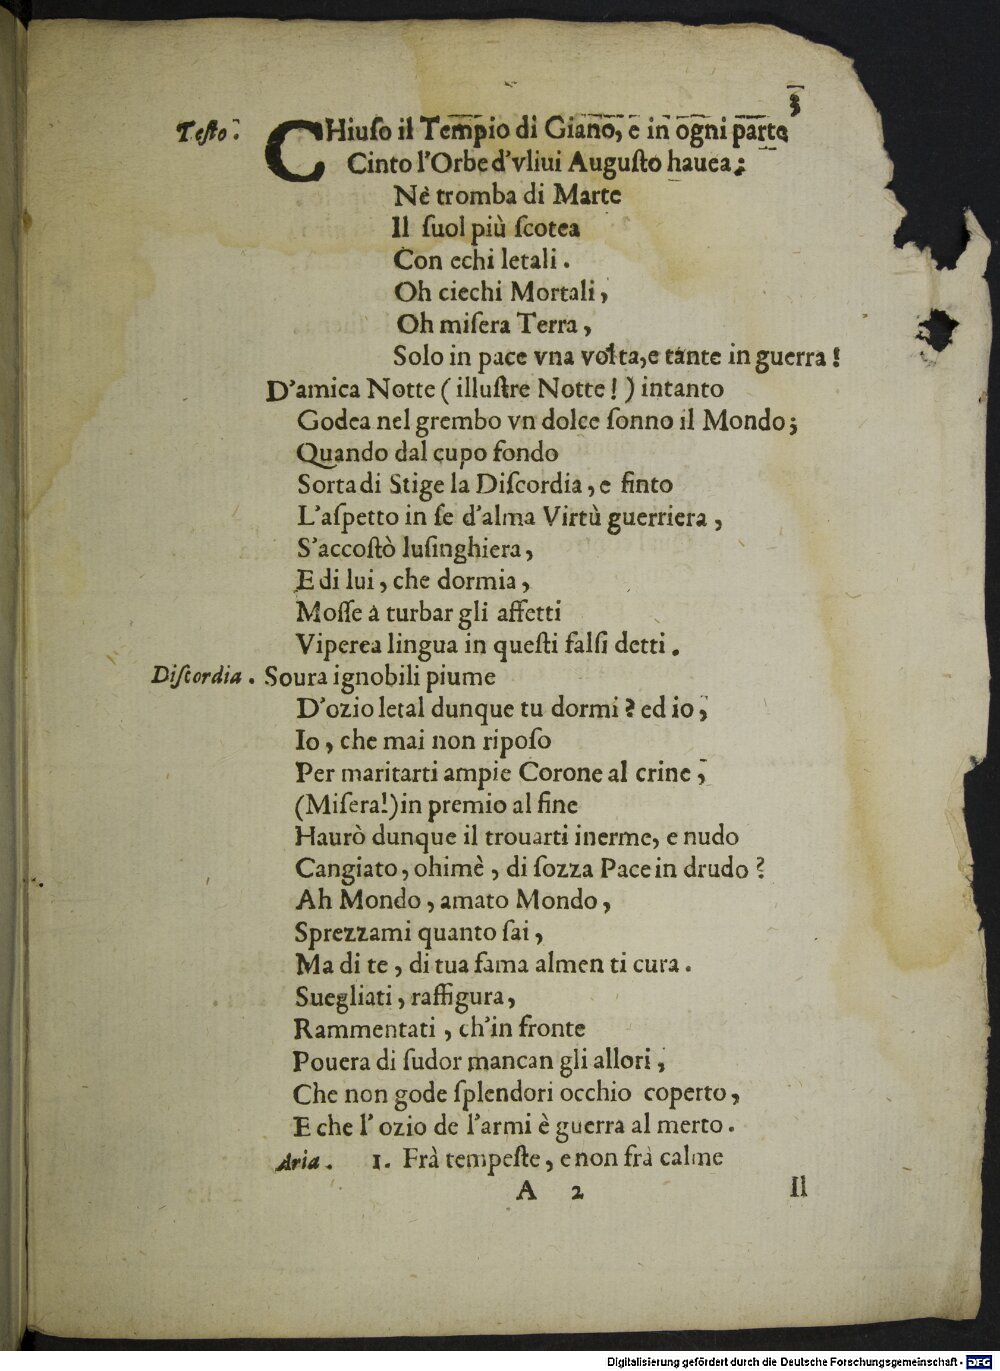 3
Teſto. CHiuſo il Tempio di Giano, e in ogni parte
Cinto l'Orbe d'vliui Auguſto hauea;
Nè tromba di Marte
Il ſuol più ſcotea
Con echi letali.
Oh ciechi Mortali,
Oh miſera Terra,
Solo in pace vna volta, e tante in guerra!
D'amica Notte (illuſtre Notte!) intanto
Godea nel grembo vn dolce ſonno il Mondo;
Quando dal cupo fondo
Sorta di Stige la Diſcordia, e finto
L'aſpetto in ſe d'alma Virtù guerriera,
S'accoſtò luſinghiera,
E di lui, che dormia,
Moſſe à turbar gli affetti
Viperea lingua in queſti falſi detti.
Diſcordia. Soura ignobili piume
D'ozio letal dunque tu dormi? ed io,
Io, che mai non ripoſo
Per maritarti ampie Corone al crine,
(Miſera!) in premio al fine
Haurò dunque il trouarti inerme, e nudo
Cangiato, ohimè, di ſozza Pace in drudo?
Ah Mondo, amato Mondo,
Sprezzami quanto ſai,
Ma di te, di tua fama almen ti cura.
Suegliati, raffigura,
Rammentati, ch'in fronte
Pouera di ſudor mancan gli allori,
Che non gode ſplendori occhio coperto,
E che l'ozio de l'armi è guerra al merto.
Aria. 1. Frà tempeſte, e non frà calme
A 2 Il
Digitalisierung gefördert durch die Deutsche Forschungsgemeinschaft - DFG